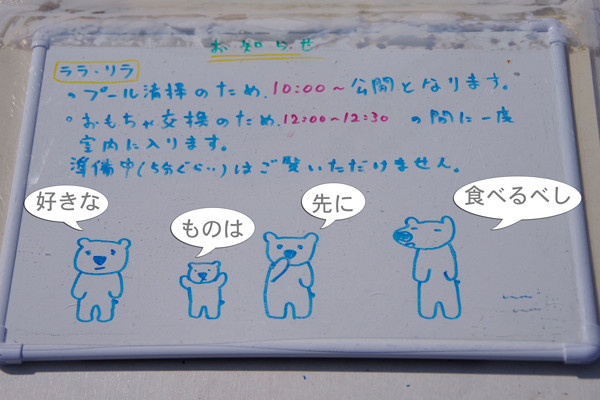 お知らせ
ララ・リラ
・プール清掃のため、10:00～公開となります。
・おもちゃ交換のため、12:00～12:30 の間に一度
室内に入ります。
準備中(5分ぐらい)はご覧いただけません。
好きな
ものは
先に
食べるべし